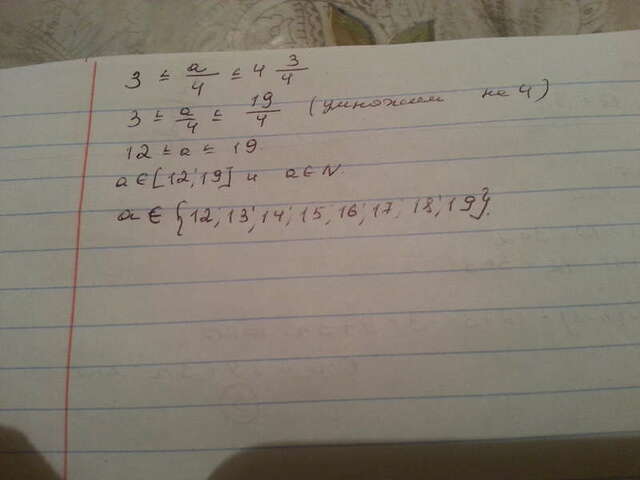 3 ≤ a/4 ≤ 4 3/4
3 ≤ a/4 ≤ 19/4 (умножим на 4)
12 ≤ a ≤ 19.
a ∈ [12; 19] и a ∈ N.
a ∈ {12; 13; 14; 15; 16; 17; 18; 19}.